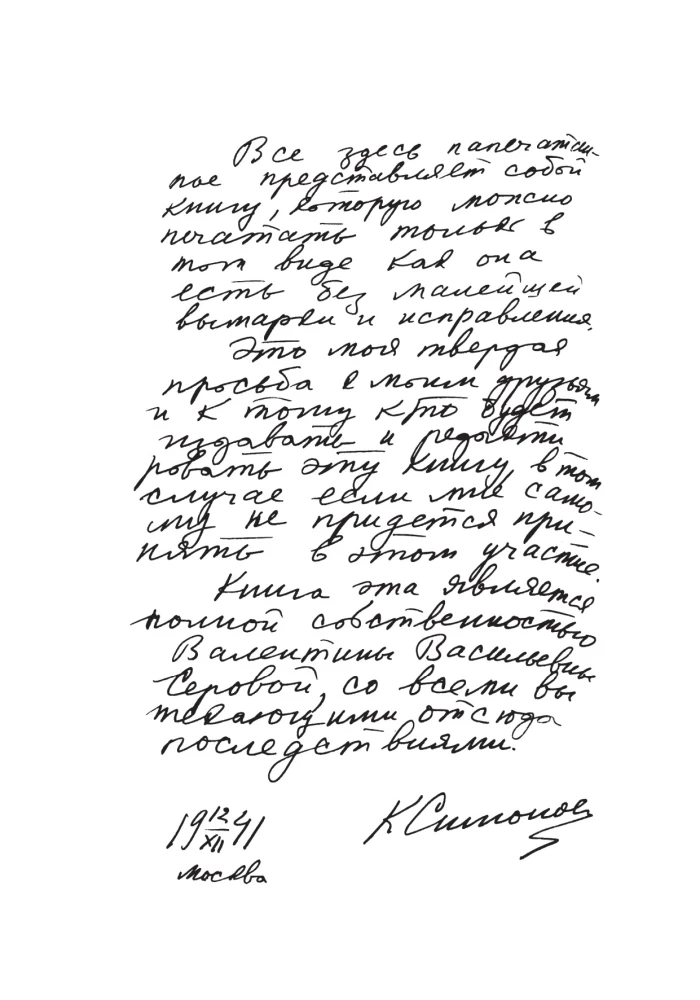 Все здесь напечатан-
ное представляет собой
книгу, которую можно
печатать только в
том виде как она
есть без малейшей
вымарки и исправления.
Это моя твердая
просьба к моим друзьям
и к тому кто будет
издавать и редакти
ровать эту книгу, в том
случае если мне само-
му не придется при-
нять в этом участие.
Книга эта является
полной собственностью
Валентины Васильевны
Серовой, со всеми вы
текающими отсюда
последствиями.
19 12/XII 41
КСимонов
Москва